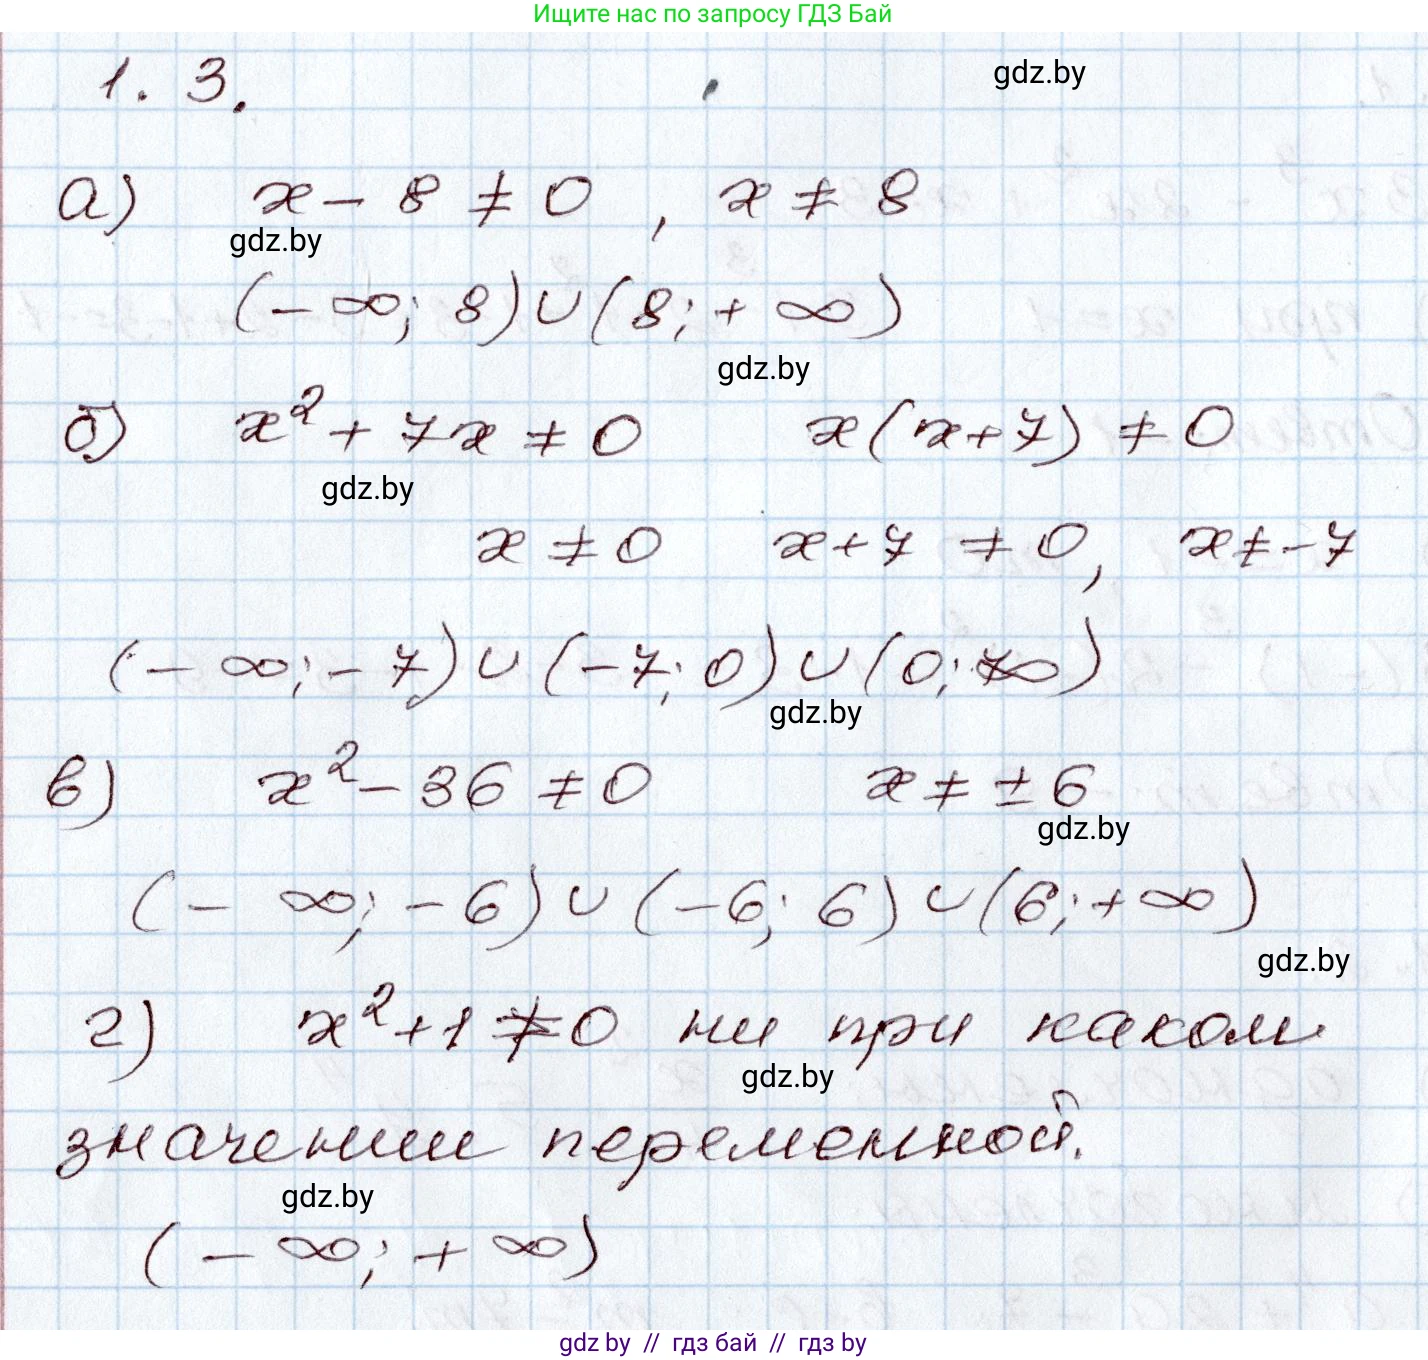 Ищите нас по запросу ГДЗ Бай
1. 3.
gdz.by
а) x - 8 ≠ 0, x ≠ 8
gdz.by
(-∞; 8)∪(8; +∞)
gdz.by
б) x² + 7x ≠ 0 x(x+7) ≠ 0
gdz.by
x ≠ 0 x+7 ≠ 0, x ≠ -7
(-∞; -7)∪(-7; 0)∪(0; ∞)
gdz.by
в) x² - 36 ≠ 0 x ≠ ±6
gdz.by
(-∞; -6)∪(-6; 6)∪(6; +∞)
gdz.by
г) x²+1 ≠ 0 ни при каком
gdz.by
значении переменной.
gdz.by
(-∞; +∞)
gdz by // гдз бай // гдз by